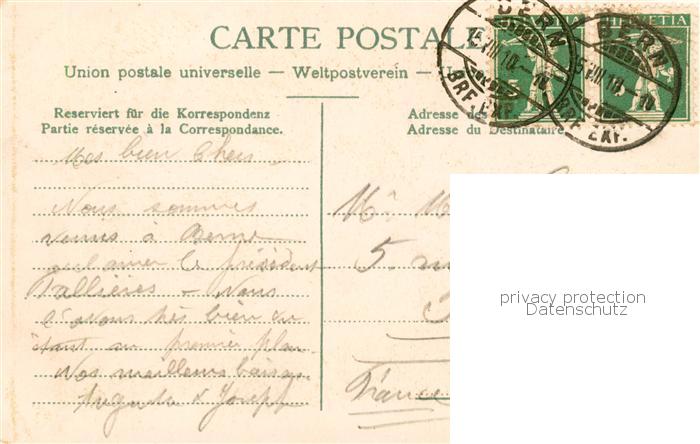 CARTE POSTALE
Union postale universelle — Weltpostverein — U
HELVETIA
HELVETIA
BERN
BRF. EXP.
BERN
BRF. EXP.
Reserviert für die Korrespondenz
Partie réservée à la Correspondance.
Adresse des
Adresse du Destinataire.
Mes bien Chers
Nous sommes
venus à Berne
acclamer le président
Fallières – Nous
l'avons très bien vu
étant au premier plan
Nos meilleurs baisers
Auguste & Joseph
Mr M
5
France
privacy protection
Datenschutz